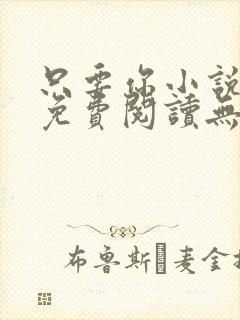 只要你小說
免費閱讀無
布魯斯麥金